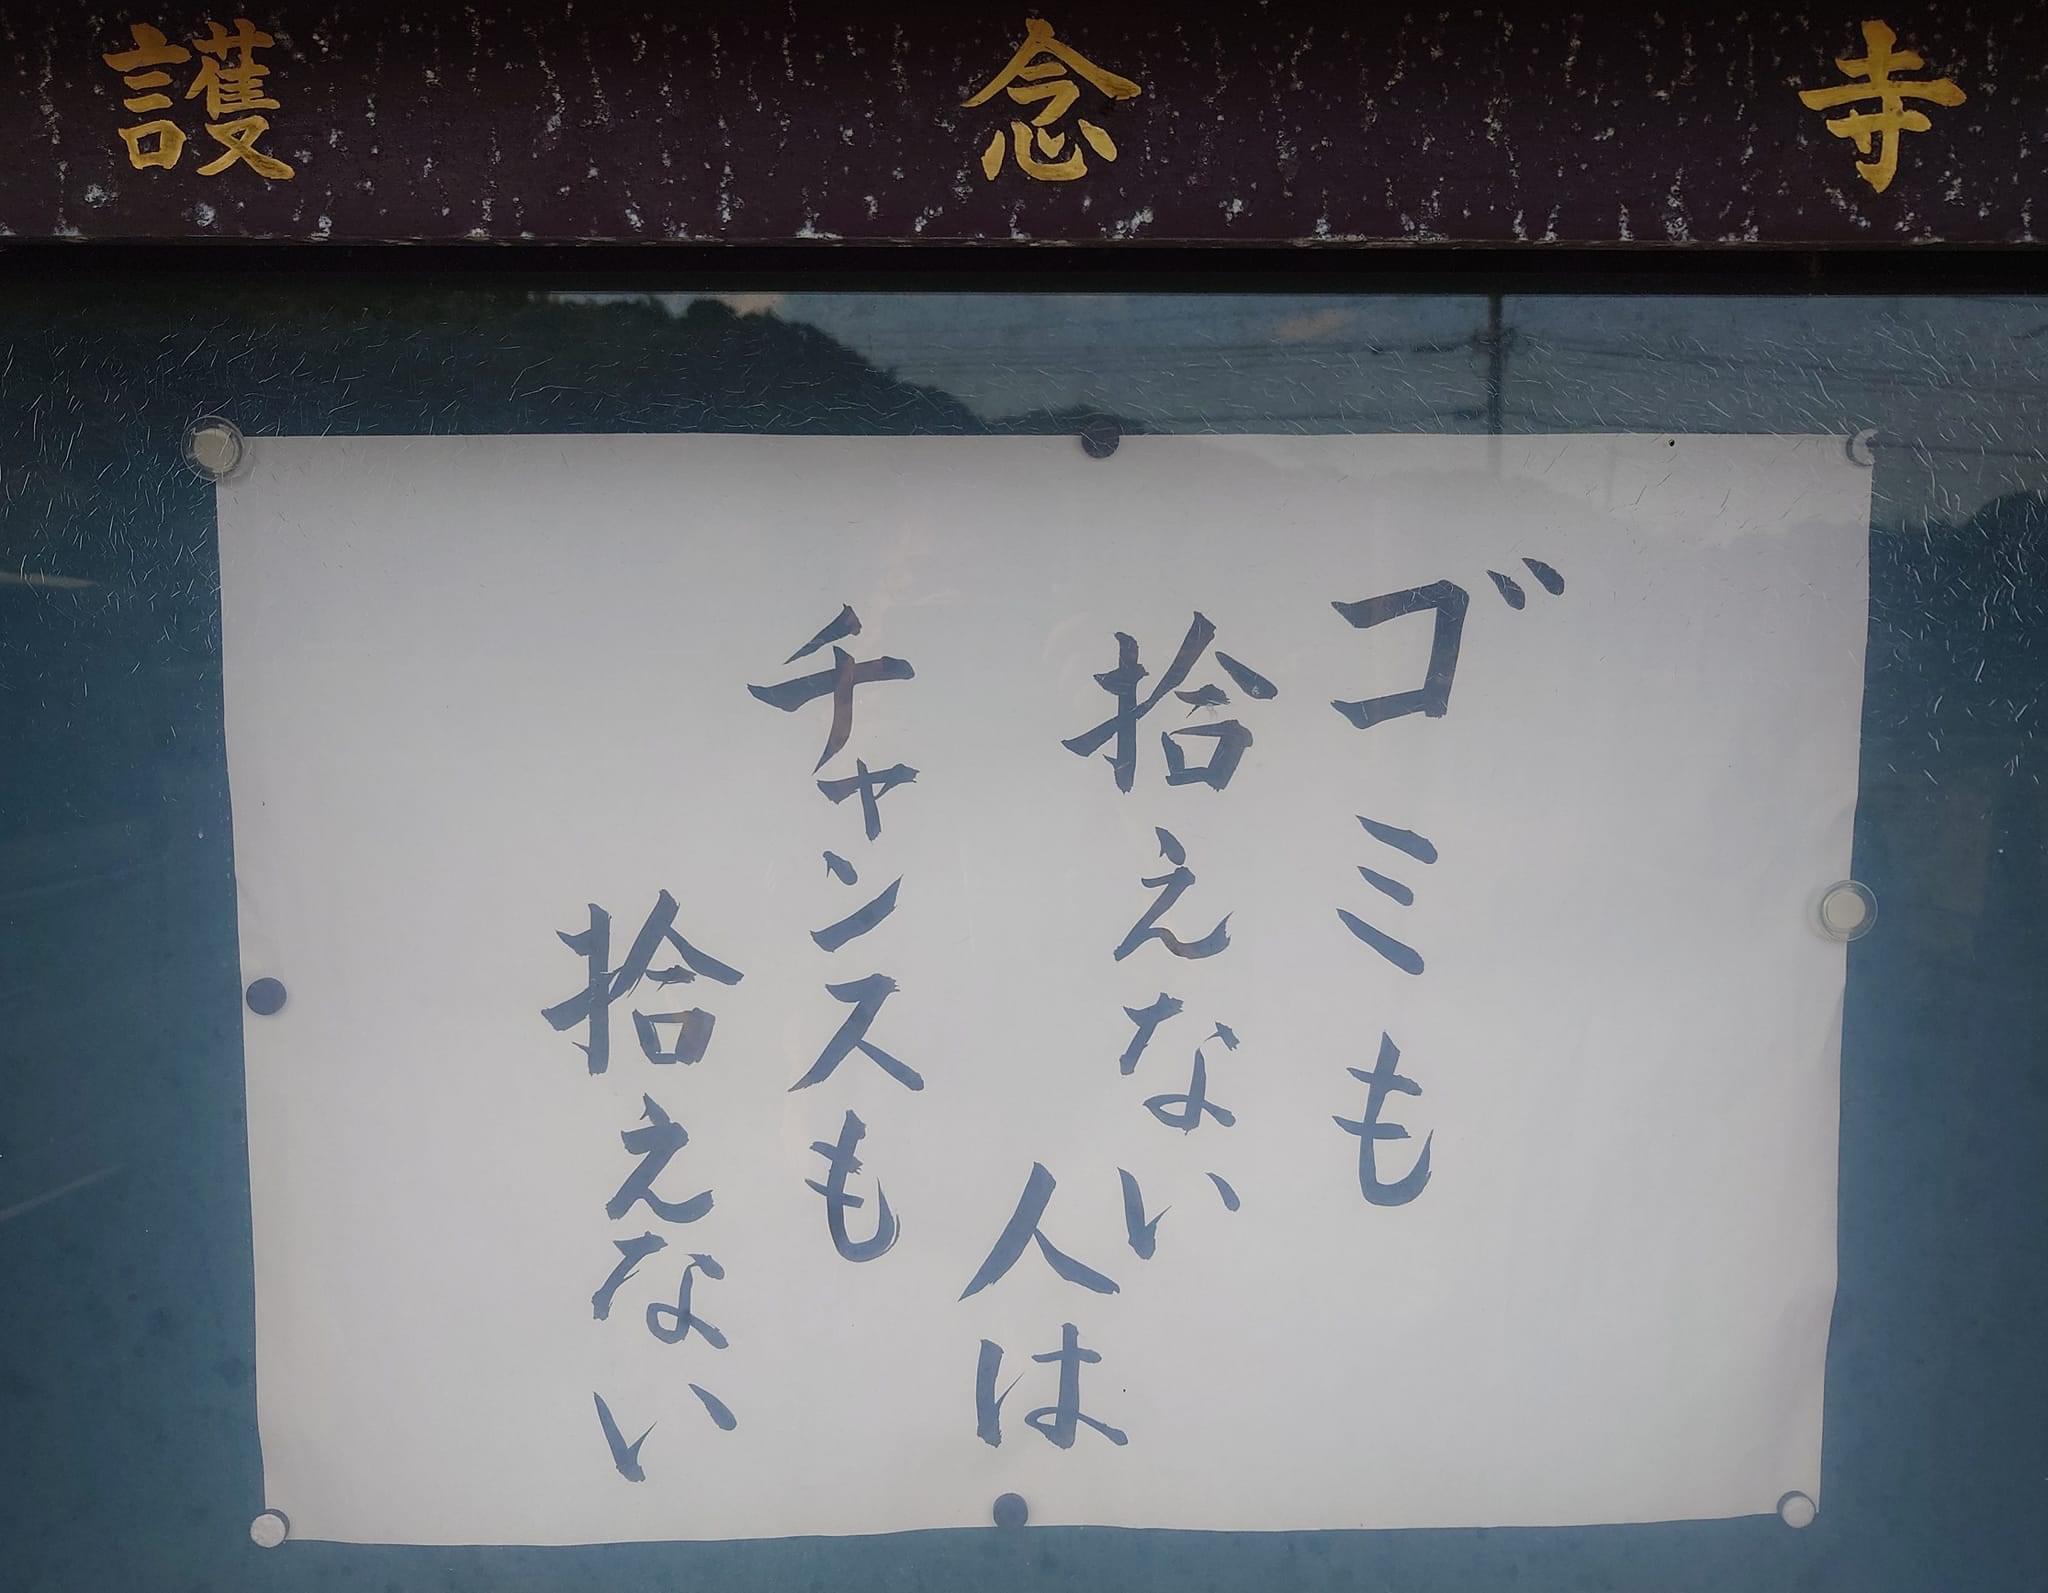 護念寺
ゴミも
拾えない
人は
チャンスも
拾えない